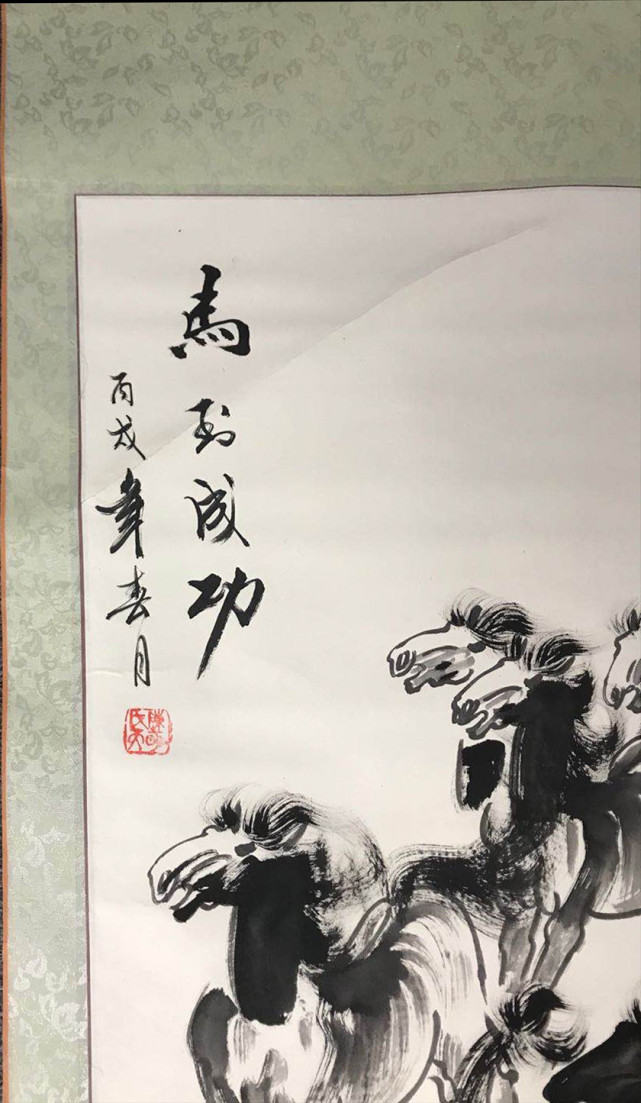 馬到成功
丙戌年春月